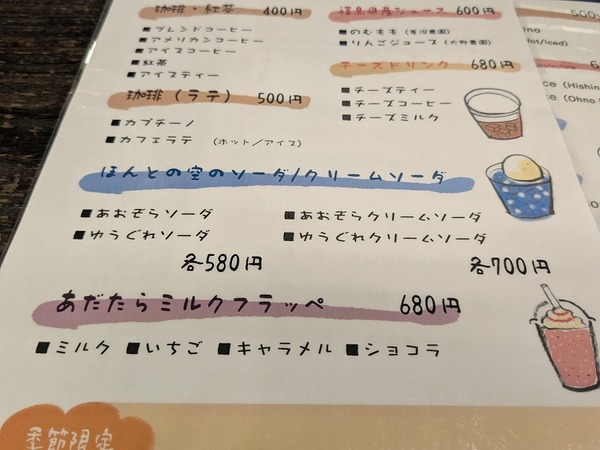 珈琲・紅茶 400円
■ブレンドコーヒー
■アメリカンコーヒー
■アイスコーヒー
■紅茶
■アイスティー
珈琲(ラテ) 500円
■カプチーノ
■カフェラテ (ホット/アイス)
福島県産ジュース 600円
■のむもも
■りんごジュース (大野農園)
チーズドリンク 680円
■チーズティー
■チーズコーヒー
■チーズミルク
ほんとの空のソーダ/クリームソーダ
■あおぞらソーダ
■ゆうぐれソーダ
各580円
■あおぞらクリームソーダ
■ゆうぐれクリームソーダ
各700円
あだたらミルクフラッペ 680円
■ミルク ■いちご ■キャラメル ■ショコラ
季節限定
500
ino
ot/iced)
ce (Hishin
ce (Ohno